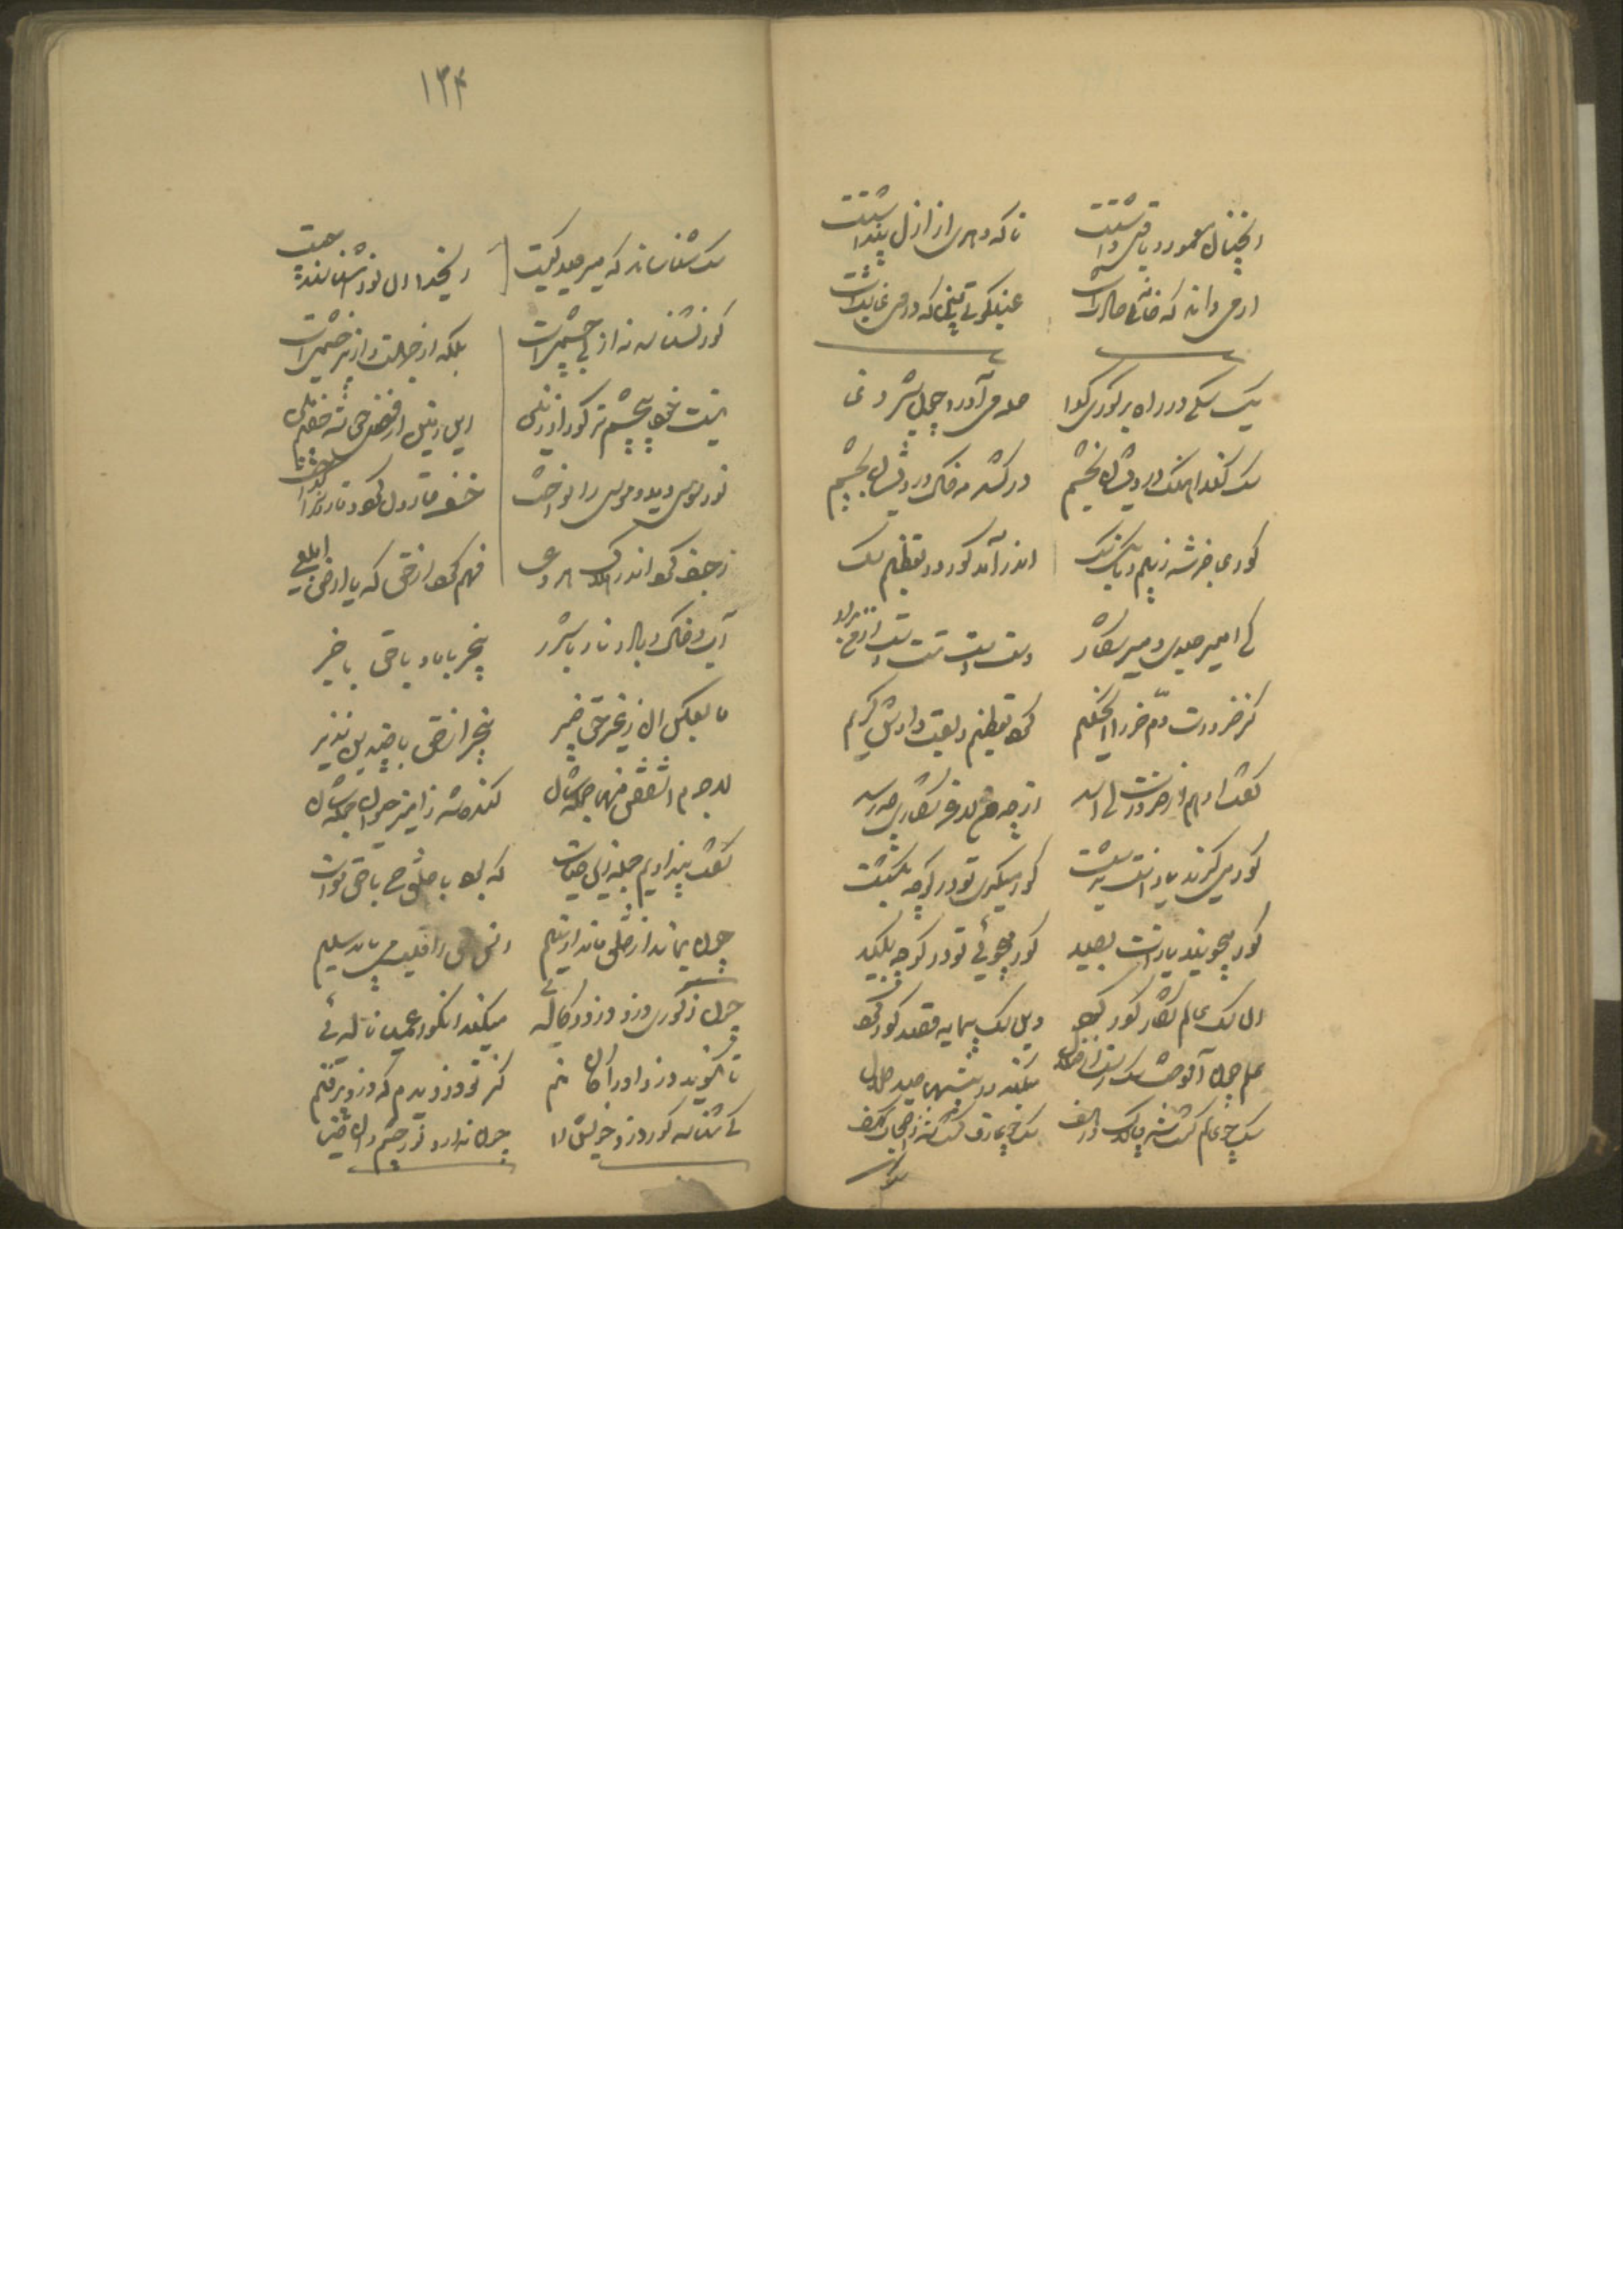 آنچنان معمور و باقی داشتت تا که دهری از ازل پنداشتت
آدمی داند که خانه حادثست عنکبوتی نی که در وی عابثست
یک سگی در راه بر کوری گدا حمله می آورد چون شیر وغا
سگ کند آهنگ درویشان بخشم در کشد مه خاک درویشان بچشم
کور عاجز شد ز بیم و بانگ سگ اندر آمد کور در تعظیم سگ
کای امیر صید و میر شکار دست دست تست دست از من بدار
کز ضرورت دم خر را آن حکیم کرد تعظیم و لقب دادش کریم
گفت او هم از ضرورت کای اسد از چو من لاغر شکاری چه رسد
گور می گیرند یارانت بدشت کور میگیری تو در کوچه بگشت
گور میجویند یارانت بصید کور میجوئی تو در کوچه بکید
آن سگ عالم شکار گور کرد وین سگ بیمایه قصد کور کرد
علم چون آموخت سگ رست از ضلال میکند در بیشها صید حلال
سگ چو عالم گشت شد چالاک سگ چو عارف گشت شد ز اصحاب کهف
سگ
۱۳۴
سگ شناسا شد که میر صید کیست ای خدا آن نور اشناسنده چیست
کور نشناسد نه از بی چشمی است بلکه از جهلست و از
نیست خود بی چشم تر کور از زمین این زمین از فضل حق شد خصم بین
نور موسی دید و موسی را نواخت خسف قارون کرد و قارون را شناخت
رجف کرد اندر هلاک هر دعی فهم کرد از حق که یا ارض ابلعی
آب و خاک و باد و نار با شرر بیخبر با ما و با حق با خبر
ما بعکس آن ز غیر حق خبیر بیخبر از حق با چندین نذیر
لاجرم اشفقن منها جمله شان کند شد ز آمیز حیوان جمله شان
گفت بیزاریم جمله زین حیات که بود با خلق حی با حق موات
چون بماند از خلق ماند او یتیم انس حق را قلب می باید سلیم
چون ز کوری دزد دزدد کاله ئی میکند آن کور عمیا ناله ئی
تا نگوید دزد او را کان منم کز تو دزدیدم که دزد پر فنم
کی شناسد کور دزد خویش را چون ندارد نور چشم و آن ضیا